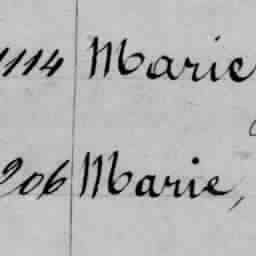 1114 Marie
206 Marie,